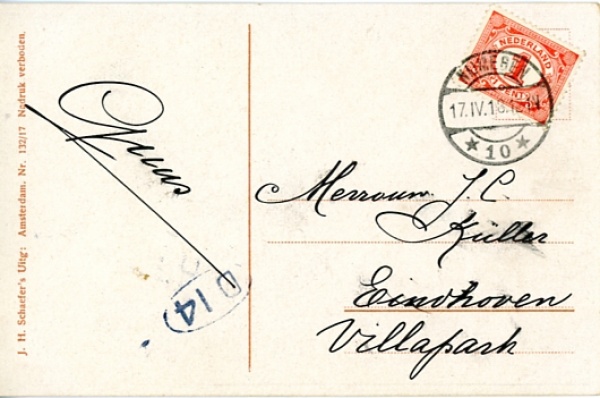 J. H. Schaefer's Uitg: Amsterdam. Nr. 132/17 Nadruk verboden.
NEDERLAND
1
CENT
17.IV.1
★ 10 ★
Mevrouw J. C.
Küller
Eindhoven
Villapark
D 14